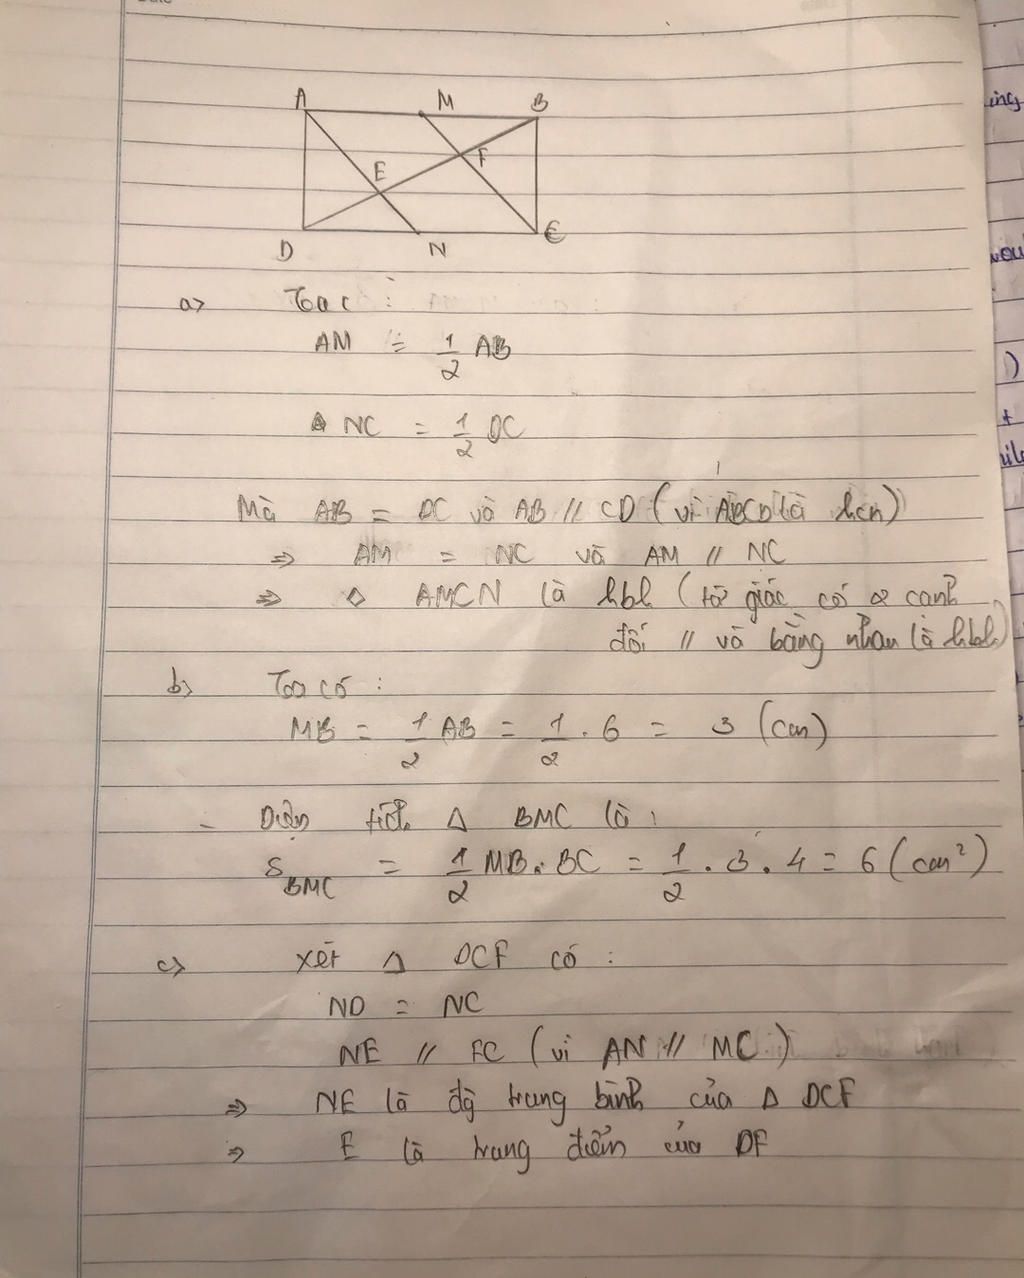 A M B
E F
D N C
a> Ta có :
AM = 1/2 AB
NC = 1/2 DC
Mà AB = DC và AB // CD (vì ABCD là hcn)
=> AM = NC và AM // NC
=> ◇ AMCN là hbh (tứ giác có 2 cạnh
đối // và bằng nhau là hbh)
b> Ta có :
MB = 1/2 AB = 1/2 . 6 = 3 (cm)
- Diện tích Δ BMC là :
S BMC = 1/2 MB . BC = 1/2 . 3 . 4 = 6 (cm²)
c> Xét Δ DCF có :
ND = NC
NE // FC (vì AN // MC)
=> NE là đg trung bình của Δ DCF
=> E là trung điểm của DF